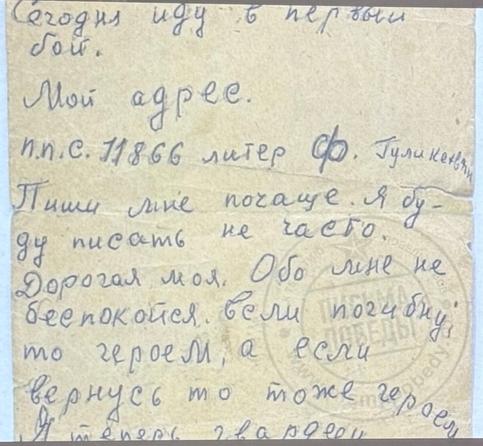 Сегодня иду в первый
бой.
Мой адрес.
п.п.с. 11866 литер Ф. Гуликевян
Пиши мне почаще. Я бу-
ду писать не часто.
Дорогая моя. Обо мне не
беспокойся. Если погибну,
то героем, а если
вернусь то тоже героем
Я теперь гвардеец
ПИСЬМА
ПОБЕДЫ